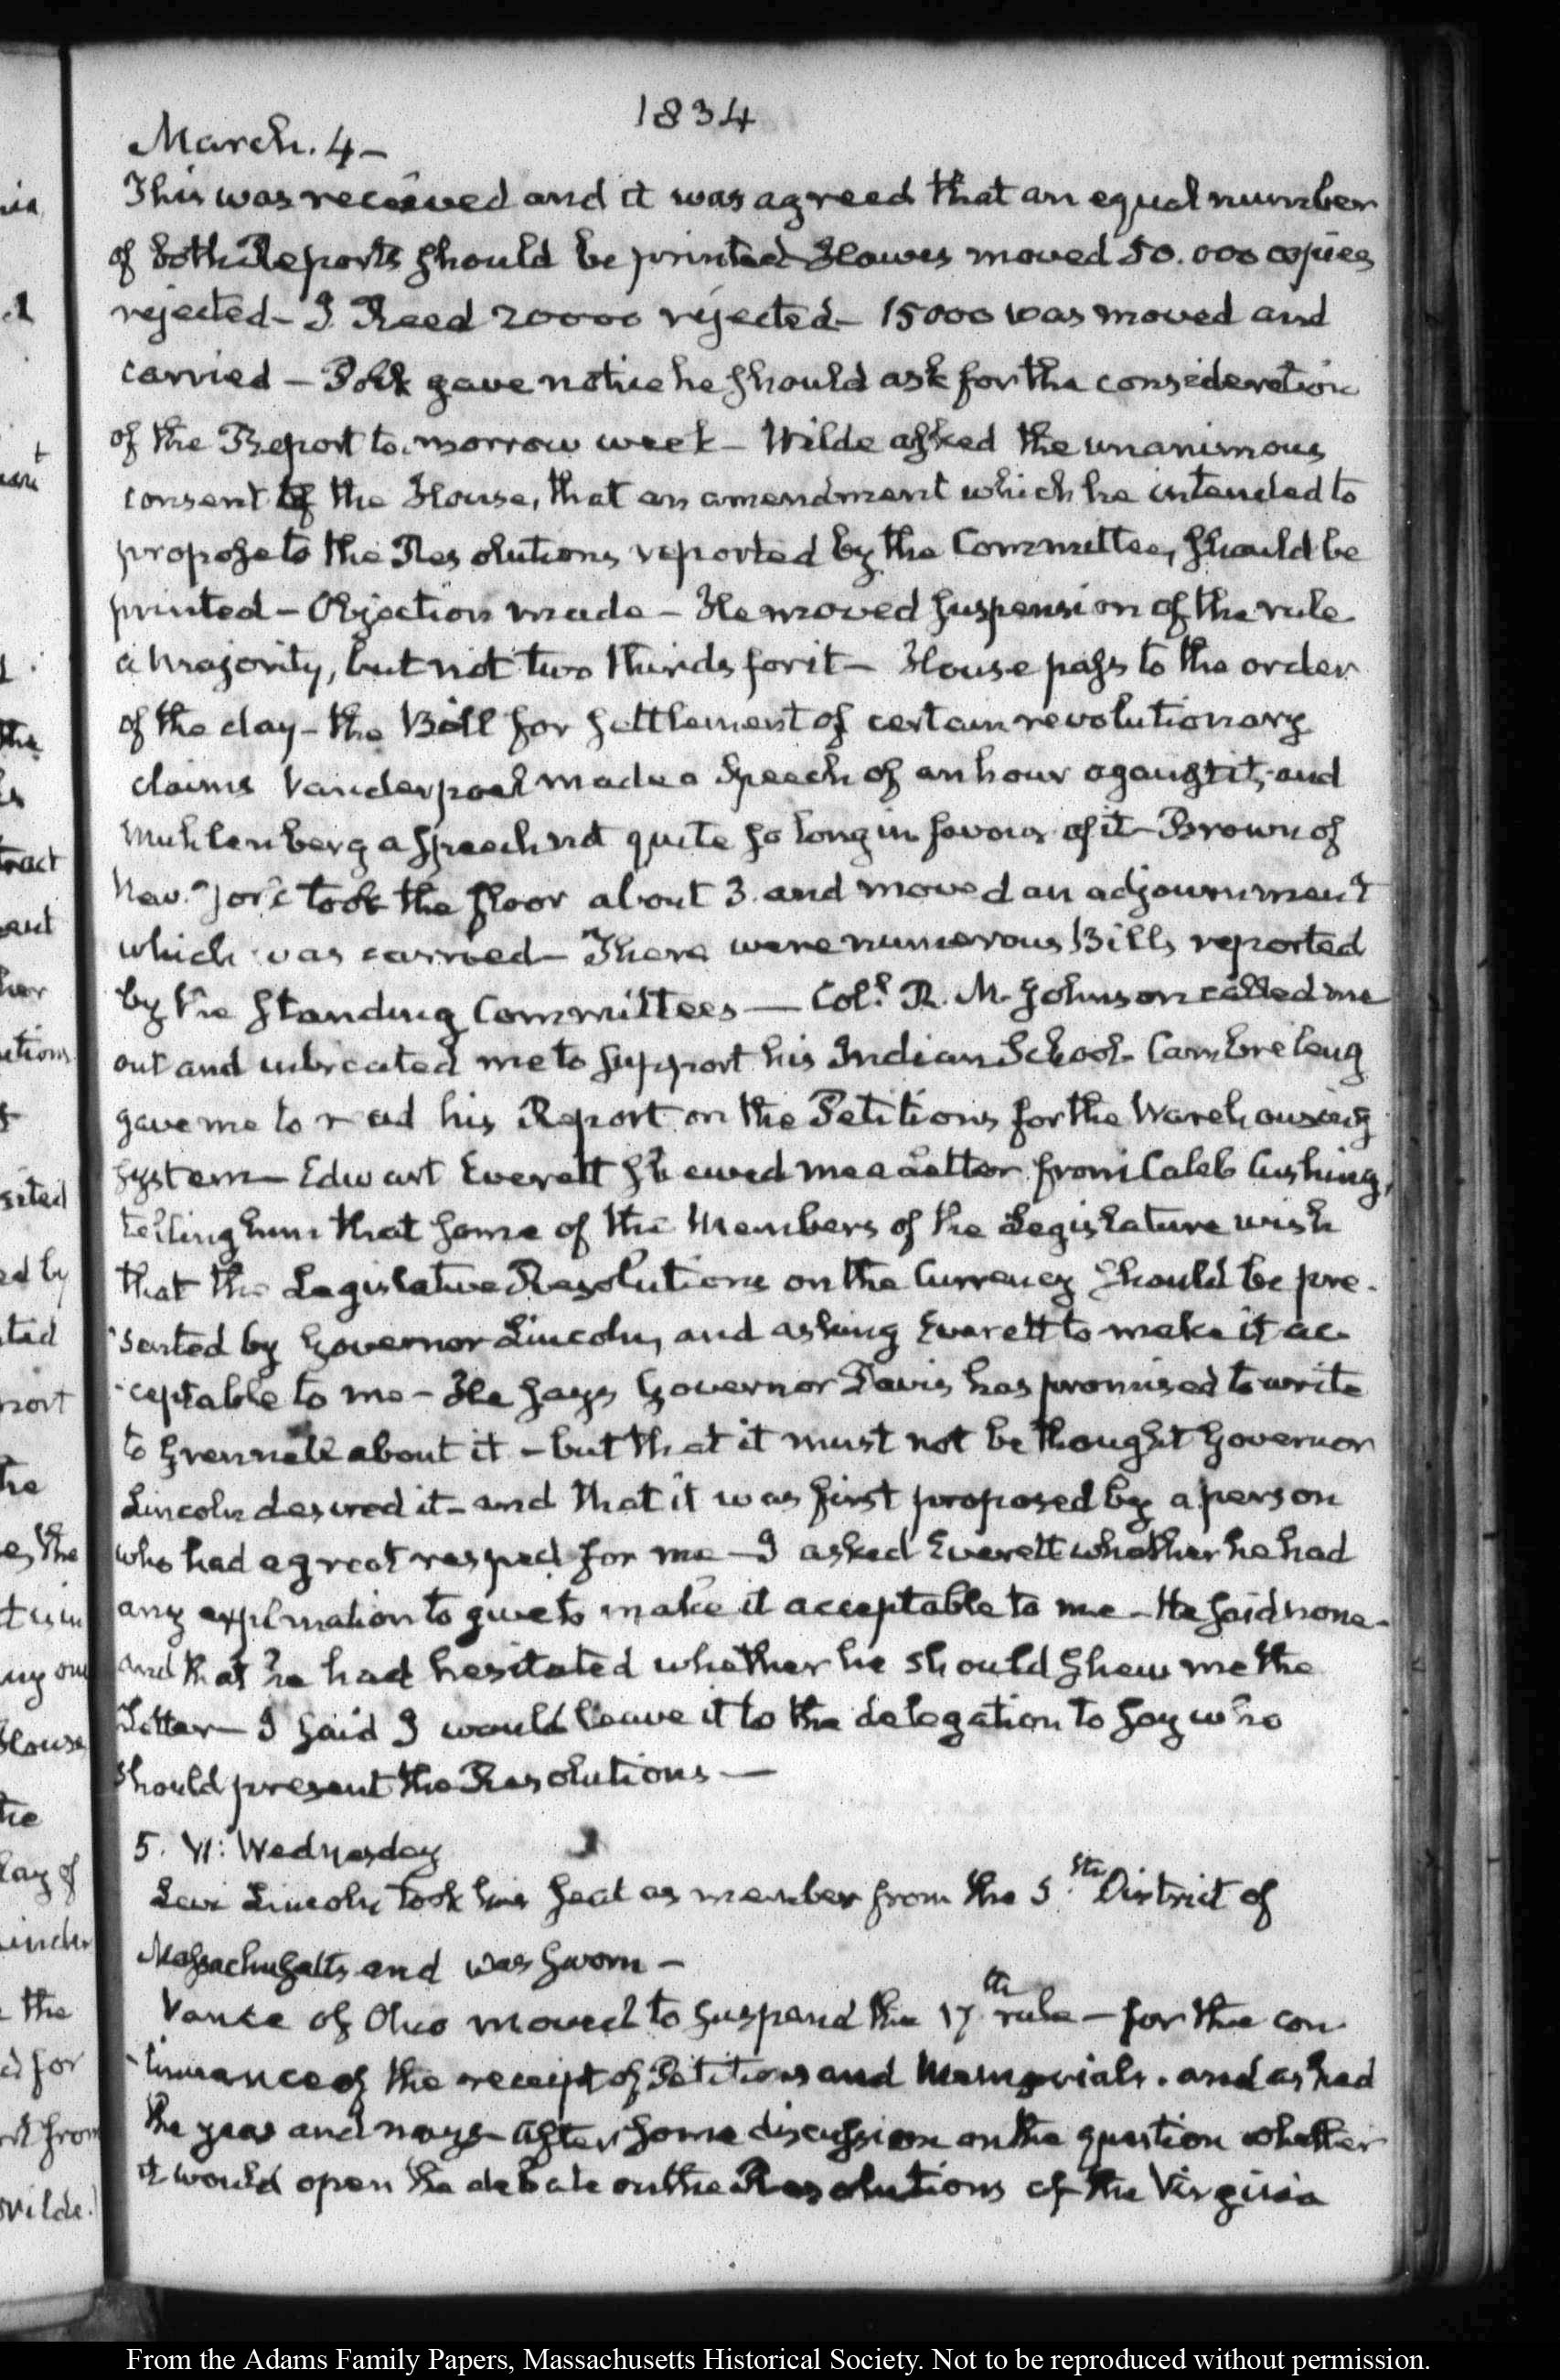 1834
March. 4–
This was received and it was agreed that an equal number
of both Reports should be printed Hawes moved 50.000 copies
rejected– J. Reed 20000 rejected– 15000 was moved and
carried – Polk gave notice he should ask for the consideration
of the Report to morrow week – Wilde asked the unanimous
consent of the House, that an amendment which he intended to
propose to the Resolutions reported by the Committee, should be
printed – Objection made – He moved suspension of the rule
a majority, but not two thirds for it – House pass to the order
of the day – the Bill for settlement of certain revolutionary
claims Vanderpoel made a Speech of an hour against it, and
Muhlenberg a speech not quite so long in favour of it – Brown of
New-York took the floor about 3. and moved an adjournment
which was carried – There were numerous Bills reported
by the standing Committees — Col.l R. M. Johnson called me
out and me to support his Indian School– Cambreleng
gave me to read his Report on the Petitions for the Warehousing
system – Edward Everett shewed me a Letter from Caleb Cushing,
telling him that some of the Members of the Legislature wish
that the Legislative Resolutions on the Currency should be pre-
sented by Governor Lincoln, and asking Everett to make it ac-
-ceptable to me – He says Governor Davis has promised to write
to Grennell about it – but that it must not be thought Governor
Lincoln desired it – and that it was first proposed by a person
who had a great respect for me – I asked Everett whether he had
any explanation to give to make it acceptable to me – He said none –
and that he had hesitated whether he should shew me the
Letter – I said I would leave it to the delegation to say who
should present the Resolutions —
5. VI: Wednesday
Levi Lincoln took his seat as member from the 5.th District of
Massachusetts and was sworn –
Vance of Ohio moved to suspend the 17th rule – for the con-
-tinuance of the receipt of Petitions and Memorials. and asked
the yeas and nays – after some discussion on the question whether
it would open the debate on the Resolutions of the Virginia
From the Adams Family Papers, Massachusetts Historical Society. Not to be reproduced without permission.